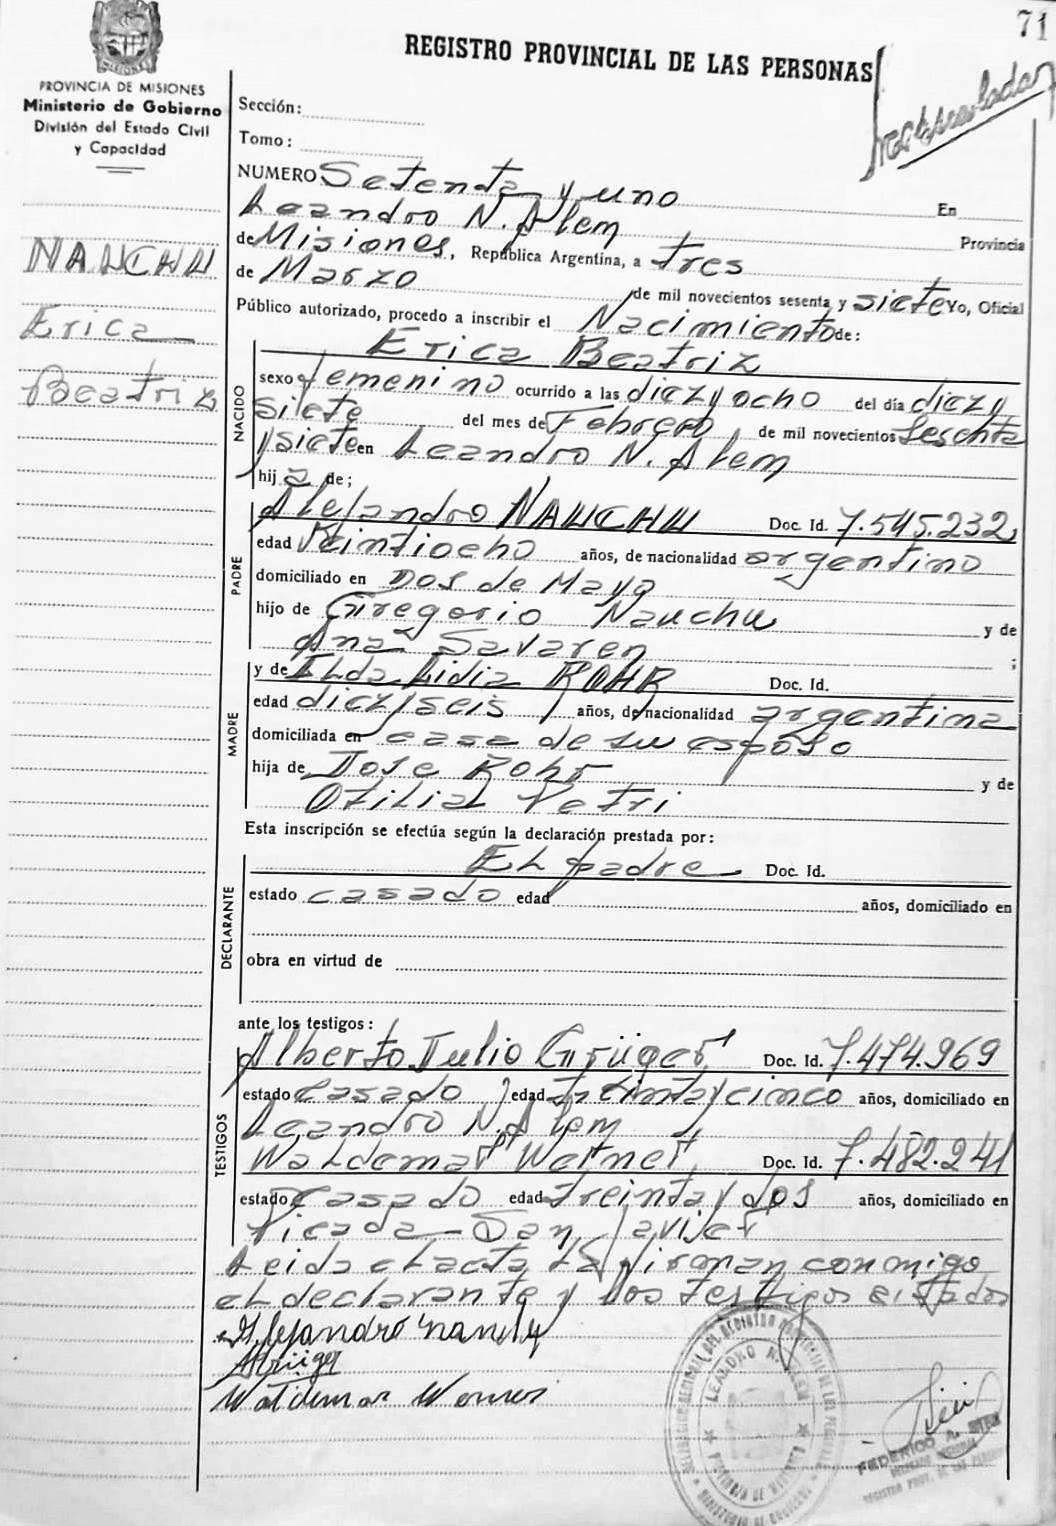 71
REGISTRO PROVINCIAL DE LAS PERSONAS
MISIONES
PROVINCIA DE MISIONES
Ministerio de Gobierno
División del Estado Civil
y Capacidad
Sección:
Tomo:
NUMERO Setenta y uno
En
Leandro N. Alem
Provincia
de Misiones, República Argentina, a tres
de Marzo de mil novecientos sesenta y siete Yo, Oficial
Público autorizado, procedo a inscribir el Nacimiento de:
NAUCHU
Erica
Beatriz
NACIDO
Erica Beatriz
sexo femenino ocurrido a las diez y ocho del día diez y
siete del mes de Febrero de mil novecientos sesenta
y siete en Leandro N. Alem
hij a de;
PADRE
Alejandro NAUCHU Doc. Id. 7.545.232
edad Veintiocho años, de nacionalidad argentino
domiciliado en Dos de Mayo
hijo de Gregorio Nauchu y de
Ana Savaren ;
MADRE
y de Elda Lidia ROHR Doc. Id.
edad diez y seis años, de nacionalidad argentina
domiciliada en casa de su esposo
hija de Jose Rohr y de
Otilia Petri
Esta inscripción se efectúa según la declaración prestada por:
DECLARANTE
El padre Doc. Id.
estado casado edad años, domiciliado en
obra en virtud de
ante los testigos:
TESTIGOS
Alberto Julio Grüger Doc. Id. 7.474.969
estado casado edad treinta y cinco años, domiciliado en
Leandro N. Alem
Waldemar Werner Doc. Id. 7.482.241
estado casado edad treinta y dos años, domiciliado en
Picada San Javier
Leida el acta la firman conmigo
el declarante y los testigos citados
Alejandro Nauchu
AGrüger
Waldemar Werner
LEANDRO N. ALEM
PROVINCIA DE MISIONES
MINISTERIO DE GOBIERNO
FEDERICO A.